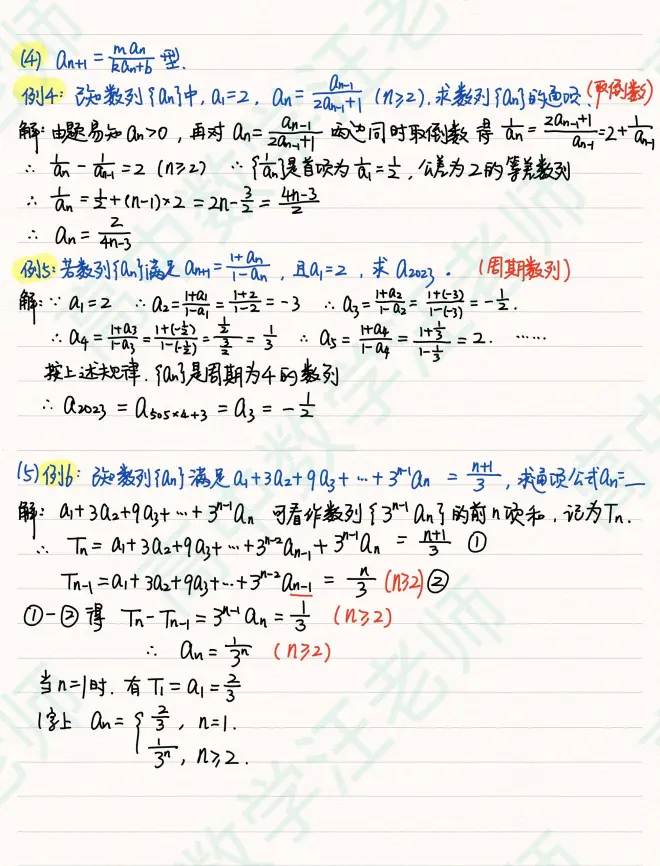 (4) aₙ₊₁ = maₙ/(kaₙ+b) 型.
例4: 已知数列{aₙ}中, a₁=2, aₙ = aₙ₋₁/(2aₙ₋₁+1) (n≥2). 求数列{aₙ}的通项. (取倒数)
解: 由题易知 aₙ>0, 再对 aₙ = aₙ₋₁/(2aₙ₋₁+1) 两边同时取倒数 得 1/aₙ = (2aₙ₋₁+1)/aₙ₋₁ = 2+1/aₙ₋₁
∴ 1/aₙ - 1/aₙ₋₁ = 2 (n≥2) ∴ {1/aₙ}是首项为 1/a₁ = 1/2, 公差为 2 的等差数列
∴ 1/aₙ = 1/2+(n-1)×2 = 2n-3/2 = (4n-3)/2
∴ aₙ = 2/(4n-3)
例5: 若数列{aₙ}满足 aₙ₊₁ = (1+aₙ)/(1-aₙ), 且a₁=2, 求 a₂₀₂₃. (周期数列)
解: ∵ a₁=2 ∴ a₂ = (1+a₁)/(1-a₁) = (1+2)/(1-2) = -3 ∴ a₃ = (1+a₂)/(1-a₂) = (1+(-3))/(1-(-3)) = -1/2.
∴ a₄ = (1+a₃)/(1-a₃) = (1+(-1/2))/(1-(-1/2)) = (1/2)/(3/2) = 1/3 ∴ a₅ = (1+a₄)/(1-a₄) = (1+1/3)/(1-1/3) = 2. ……
按上述规律. {aₙ}是周期为4的数列
∴ a₂₀₂₃ = a₅₀₅ₓ₄₊₃ = a₃ = -1/2
(5) 例6: 已知数列{aₙ}满足 a₁+3a₂+9a₃+…+3ⁿ⁻¹aₙ = (n+1)/3, 求通项公式aₙ=__
解: a₁+3a₂+9a₃+…+3ⁿ⁻¹aₙ 可看作数列{3ⁿ⁻¹aₙ}的前n项和, 记为Tₙ.
∴ Tₙ = a₁+3a₂+9a₃+…+3ⁿ⁻²aₙ₋₁+3ⁿ⁻¹aₙ = (n+1)/3 ①
Tₙ₋₁ = a₁+3a₂+9a₃+…+3ⁿ⁻²aₙ₋₁ = n/3 (n≥2) ②
①-② 得 Tₙ-Tₙ₋₁ = 3ⁿ⁻¹aₙ = 1/3 (n≥2)
∴ aₙ = 1/3ⁿ (n≥2)
当n=1时. 有 T₁=a₁=2/3
综上 aₙ = { 2/3, n=1.
1/3ⁿ, n≥2.
高中数学汪老师